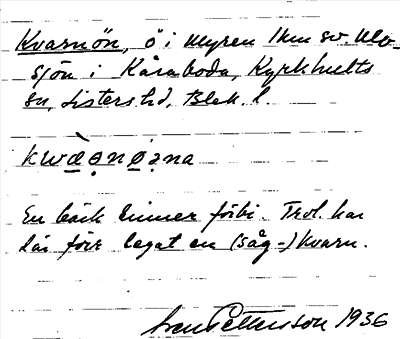 Kvarnön, ö i Myren 1 km sv. Ulv-
sjön i Kåraboda, Kyrkhults
sn, Listers hd, Blek. l.
kwæ̀ənøəna
En bäck rinner förbi. Trol. har
där förr legat en (såg-)kvarn.
Sven Pettersson 1936